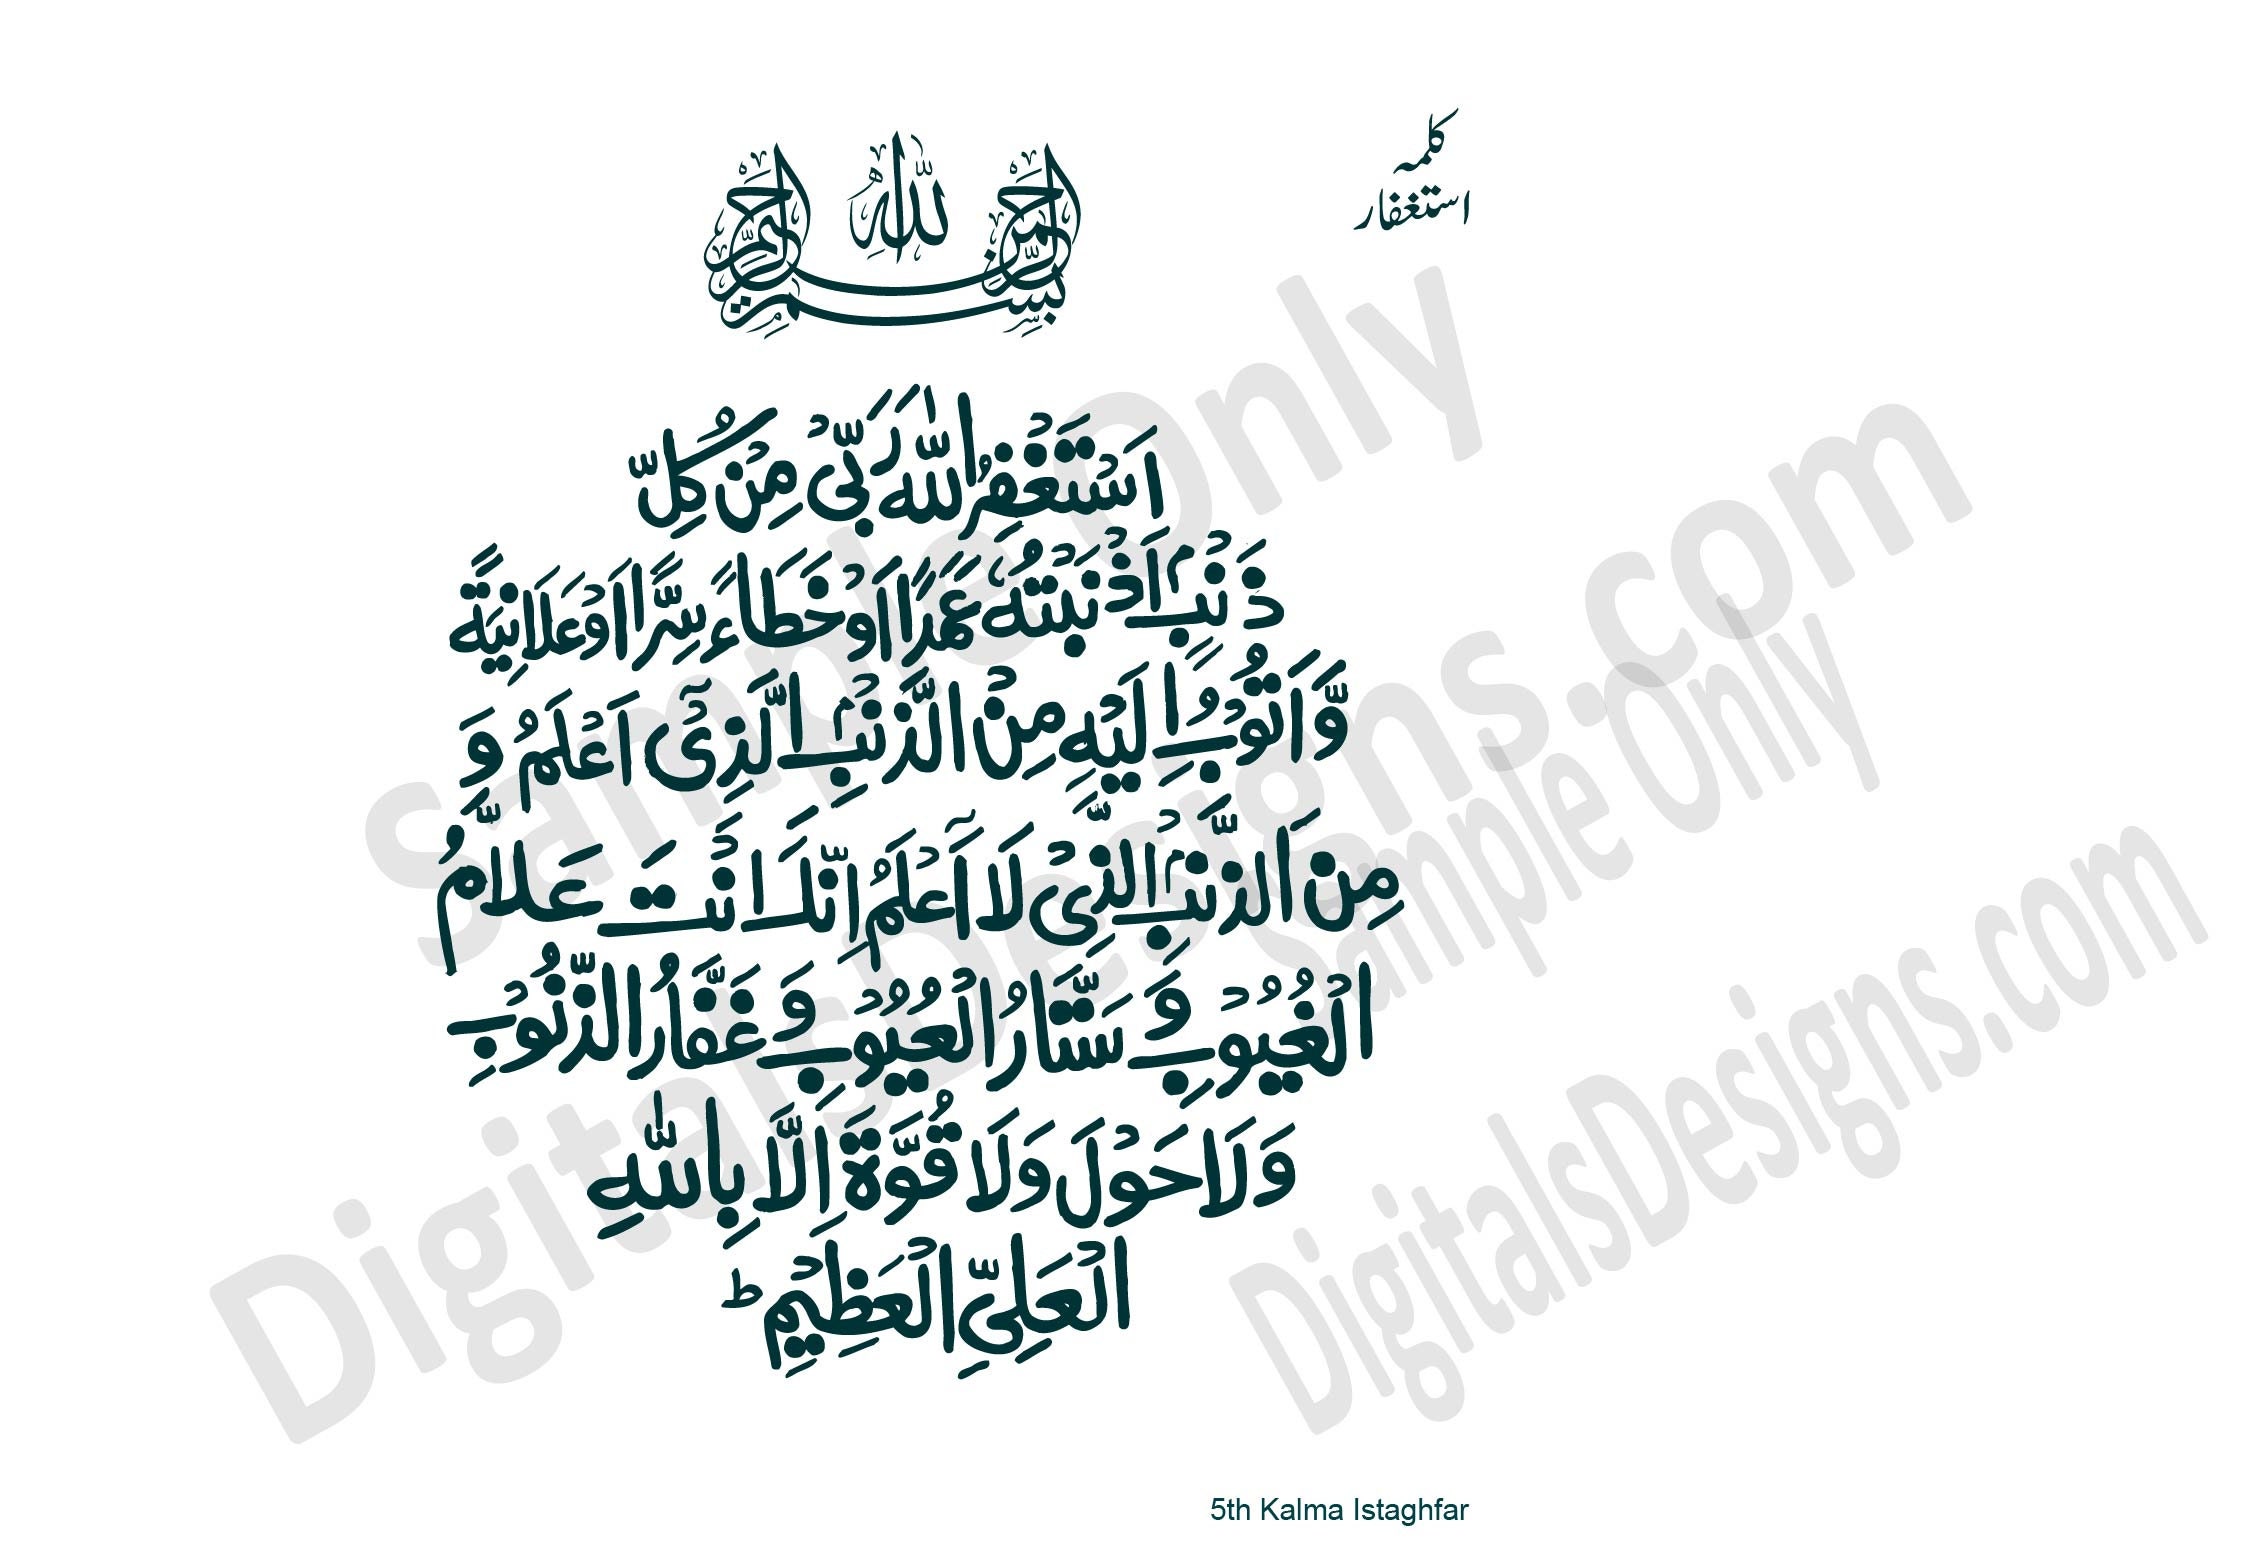 کلمہ
استغفار
بِسْمِ اللهِ الرَّحْمٰنِ الرَّحِيْمِ
اَسْتَغْفِرُ اللّٰهَ رَبِّىْ مِنْ كُلِّ
ذَنْۢبٍ اَذْنَبْتُهٗ عَمَدًا اَوْ خَطَاءً سِرًّا اَوْ عَلَانِيَةً
وَّاَتُوْبُ اِلَيْهِ مِنَ الذَّنْۢبِ الَّذِىْٓ اَعْلَمُ وَ
مِنَ الذَّنْۢبِ الَّذِىْ لَآ اَعْلَمُ اِنَّكَ اَنْتَ عَلَّامُ
الْغُيُوْبِ وَ سَتَّارُ الْعُيُوْبِ وَ غَفَّارُ الذُّنُوْبِ
وَلَا حَوْلَ وَلَا قُوَّةَ اِلَّا بِاللّٰهِ
الْعَلِىِّ الْعَظِيْمِ ؕ
Sample Only
DigitalsDesigns.com
Sample Only
DigitalsDesigns.com
5th Kalma Istaghfar